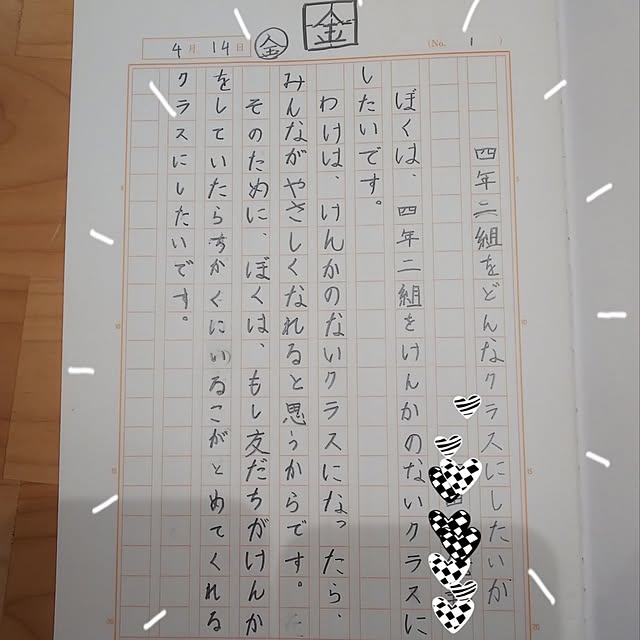 4月14日 金 金 (No. 1 )
四年二組をどんなクラスにしたいか
ぼくは、四年二組をけんかのないクラスに
したいです。
わけは、けんかのないクラスになったら、
みんながやさしくなれると思うからです。
そのために、ぼくは、もし友だちがけんか
をしていたらちかくにいるこがとめてくれる
クラスにしたいです。